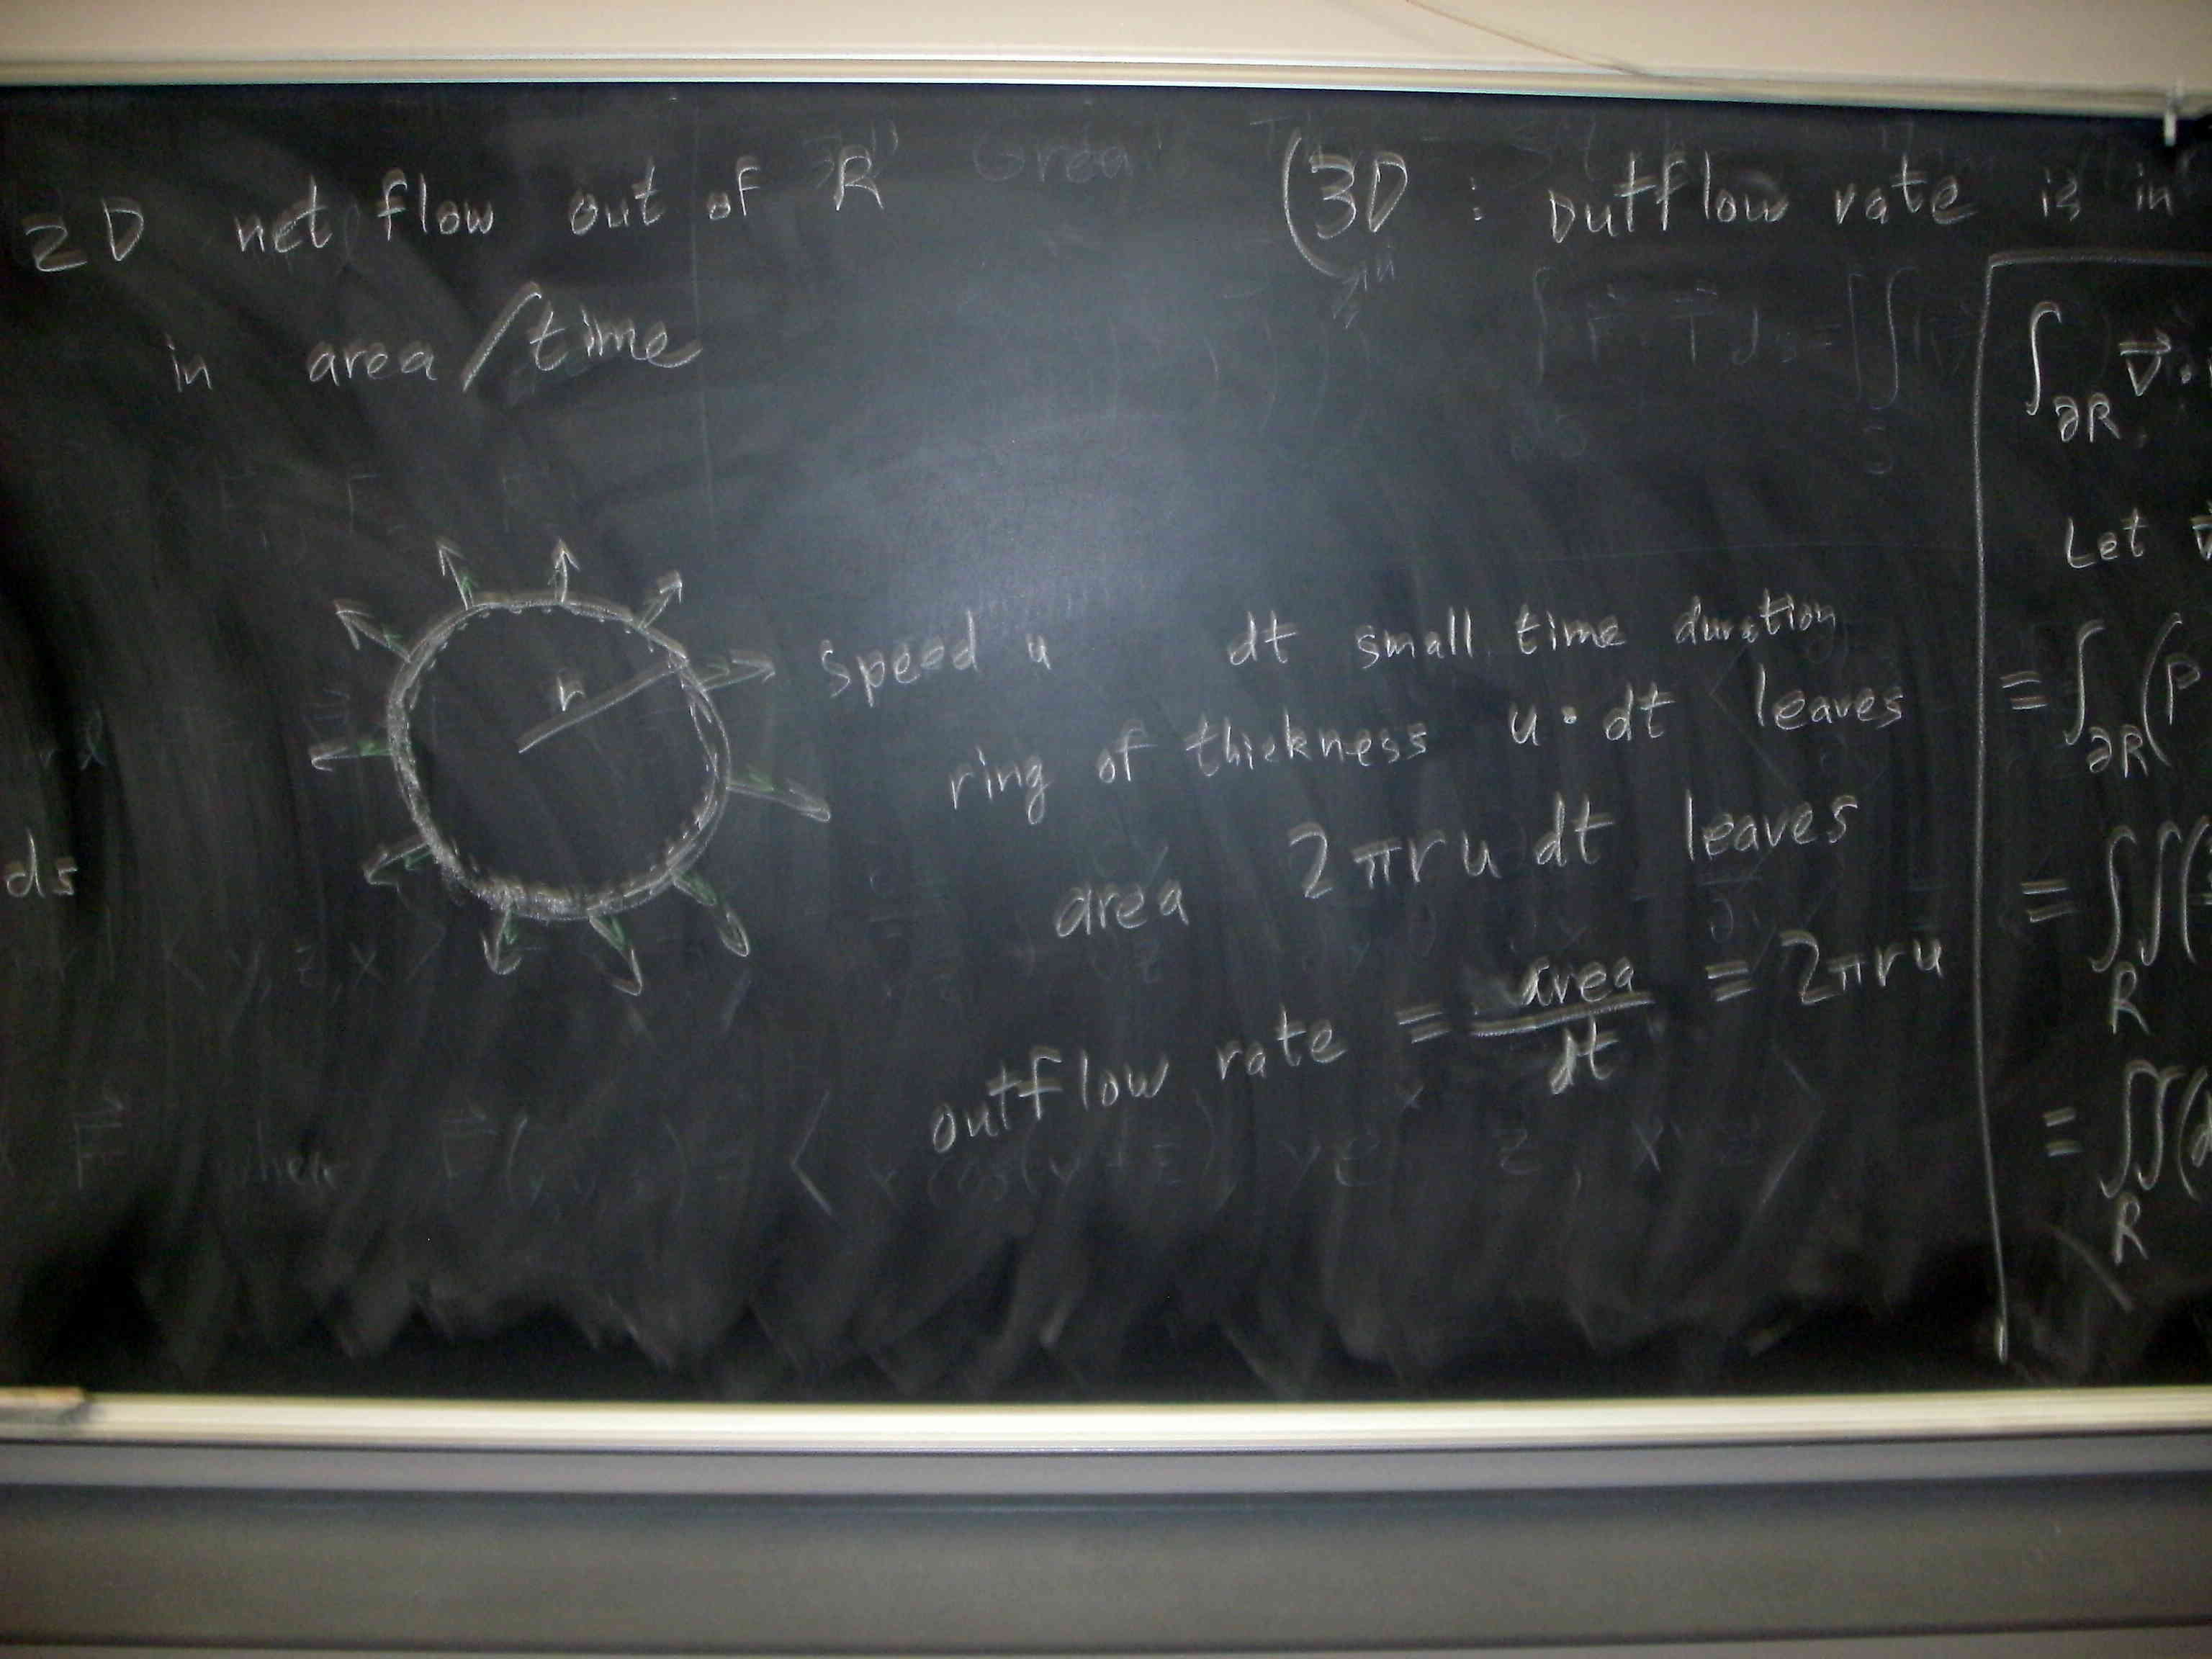 2D net flow out of R
in area/time
(3D : outflow rate is in
r
speed u
dt small time duration
ring of thickness u·dt leaves
area 2πru dt leaves
outflow rate = area/dt = 2πru
ds
∫∂R v⃗·
Let
= ∫∂R (P
= ∬R (
= ∬R (